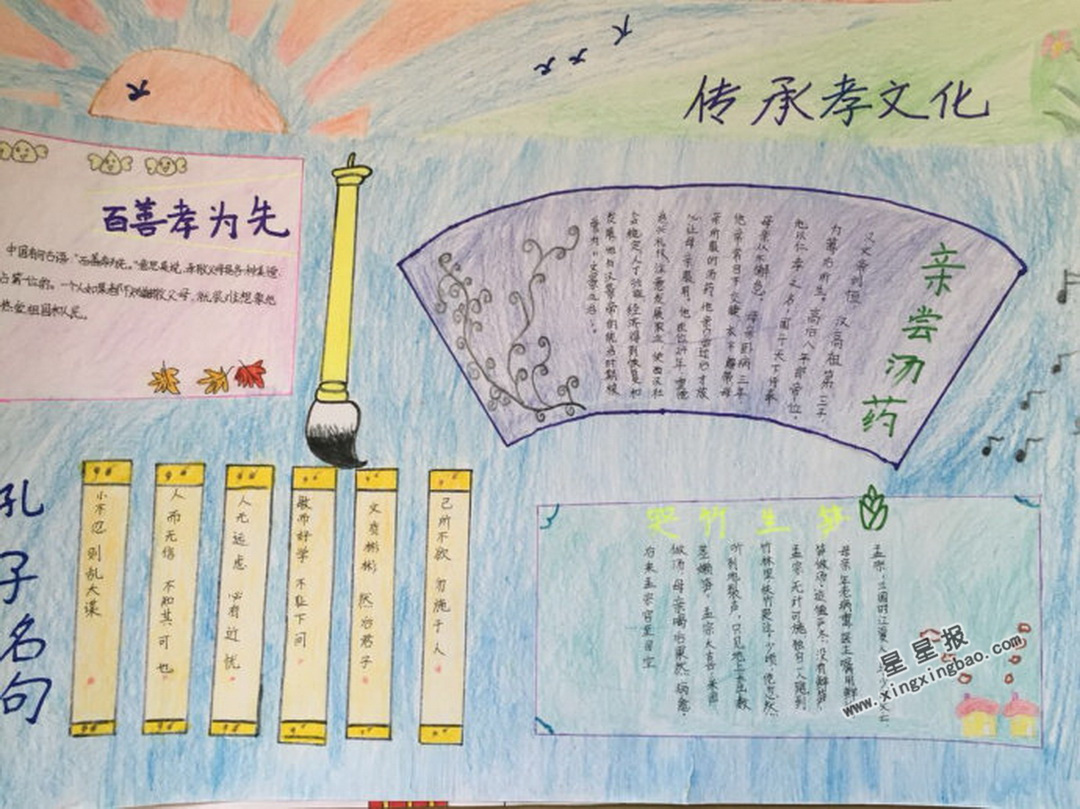 传承孝文化
百善孝为先
中国有句古语："百善孝为先。"意思是说,孝敬父母是各种美德
占第一位的。一个人如果都不知道孝敬父母,就很难想象他
热爱祖国和人民。
亲尝汤药
汉文帝刘恒,汉高祖第三子,
为薄太后所生。高后八年即帝位。
他以仁孝之名,闻于天下侍奉
母亲从不懈怠。母亲卧病三年
他常常目不交睫,衣不解带母
亲所服的汤药,他亲口尝过后才放
心让母亲服用。他在位24年,重德
治兴礼仪,注意发展农业,使西汉社
会稳定,人丁兴旺,经济得到恢复和
发展,他与汉景帝的统治时期被
誉为"文景之治"。
孔子名句
小不忍 则乱大谋
人而无信 不知其可也
人无远虑 必有近忧
敏而好学 不耻下问
文质彬彬 然后君子
己所不欲 勿施于人
哭竹生笋
孟宗,三国时江夏人
母亲年老病重,医生嘱用鲜
笋做汤。适值严冬,没有鲜笋,
孟宗无计可施,独自一人跑到
竹林里,扶竹哭泣。少顷,他忽然
听到地裂声,只见地上长出数
茎嫩笋。孟宗大喜,采回
做汤,母亲喝后果然病愈。
后来孟宗官至司空
星星报
www.xingxingbao.com